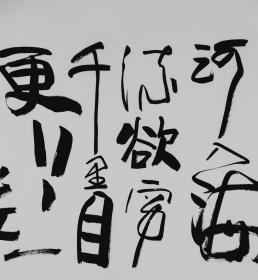 河入海
流欲穷
千里目
更上层一